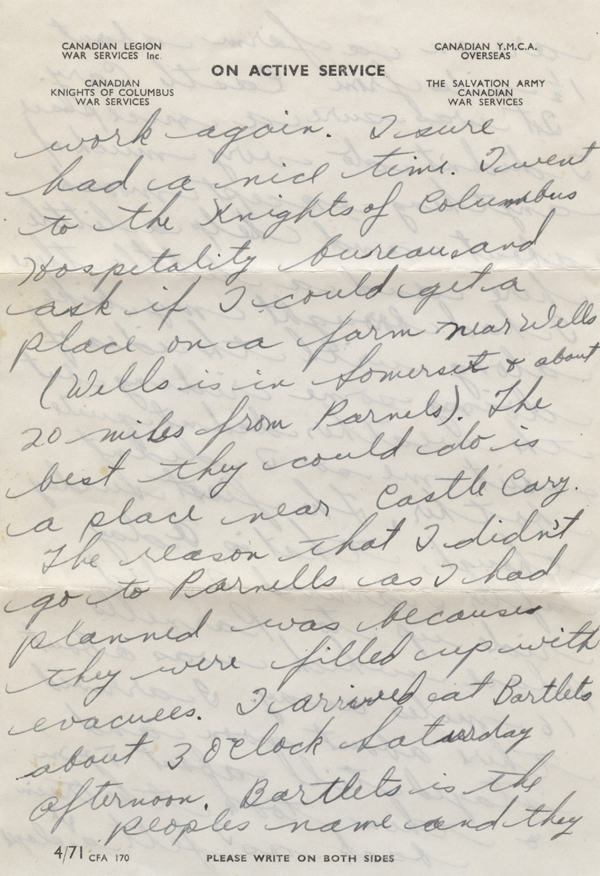 CANADIAN LEGION
WAR SERVICES Inc.
CANADIAN
KNIGHTS OF COLUMBUS
WAR SERVICES
ON ACTIVE SERVICE
CANADIAN Y.M.C.A.
OVERSEAS
THE SALVATION ARMY
CANADIAN
WAR SERVICES
work again. I sure
had a nice time. I went
to the Knights of Columbus
Hospetality bureau and
ask if I could get a
place on a farm near Wells
(Wells is in Somerset & about
20 miles from Parnels). The
best they could do is
a place near Castle Cary.
The reason that I didn't
go to Parnells as I had
planned was because
they were filled up with
evacuees. I arrived at Bartlets
about 3 O'Clock Saturday
afternoon. Bartlets is the
peoples name and they
4/71 CFA 170
PLEASE WRITE ON BOTH SIDES